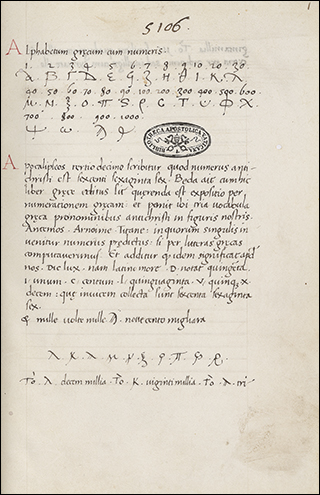 1
5106
Alphabetum grecum cum numeris.
1. 2. 3. 4. 5. 6. 7. 8. 9. 10. 20. 30
Α Β Γ Δ Ε Ϛ Ξ Η Θ Ι Κ Λ
40 50 60. 70. 80. 90. 100. 200. 300. 400. 500. 600.
Μ Ν Ξ Ο Π Ϙ Ρ Ϲ Τ Υ Φ Χ
700. 800. 900. 1000.
Ψ ω
BIBLIOTHECA APOSTOLICA VATICANA
Apocalipseos tertio decimo scribitur quod numerus anti
christi est sexcenti sexaginta sex. Beda ait cum hic
liber grece editus sit querenda est expositio per
numerationem grecam. et ponit ibi tria vocabula
greca pronominibus antichristi in figuris nostris.
Antemos. Arnoime. Titane: in quorum singulis in
venitur numerus predictus si per literas grecas
computaverimus. Et additur quidem significare apud
nos. Dic lux. nam latine more. D. notat quingenta.
i. unum. c. centum. l. quinquaginta. v. quinque. x.
decem: que invicem collecta sunt sexcenta sexaginta
sex.
mille volte mille nove cento migliara
decem millia. viginti millia. tri